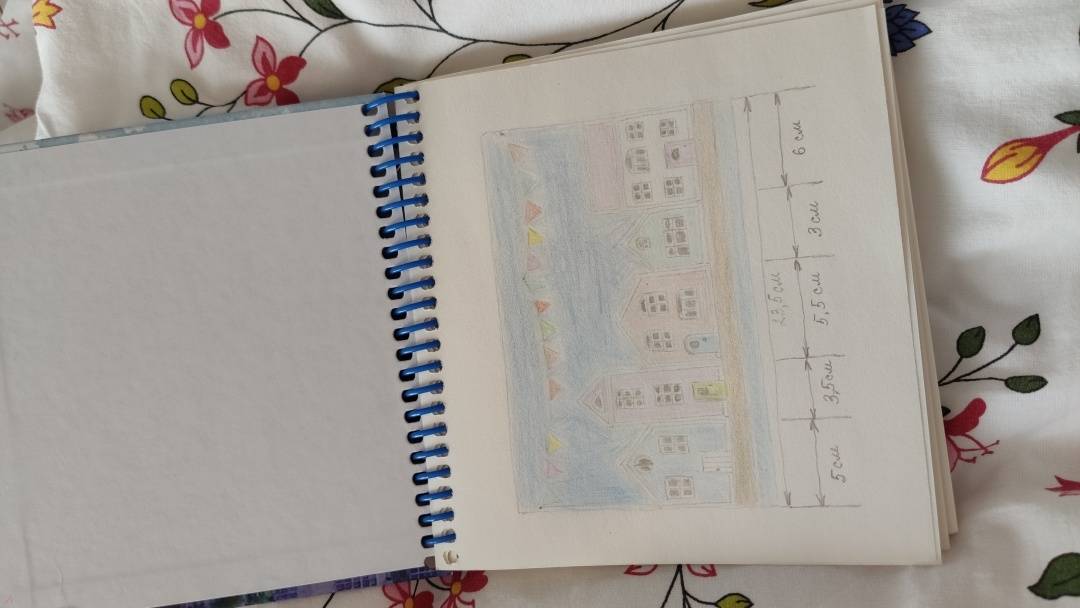 23,5 см
5 см 3,5 см 5,5 см 3 см 6 см